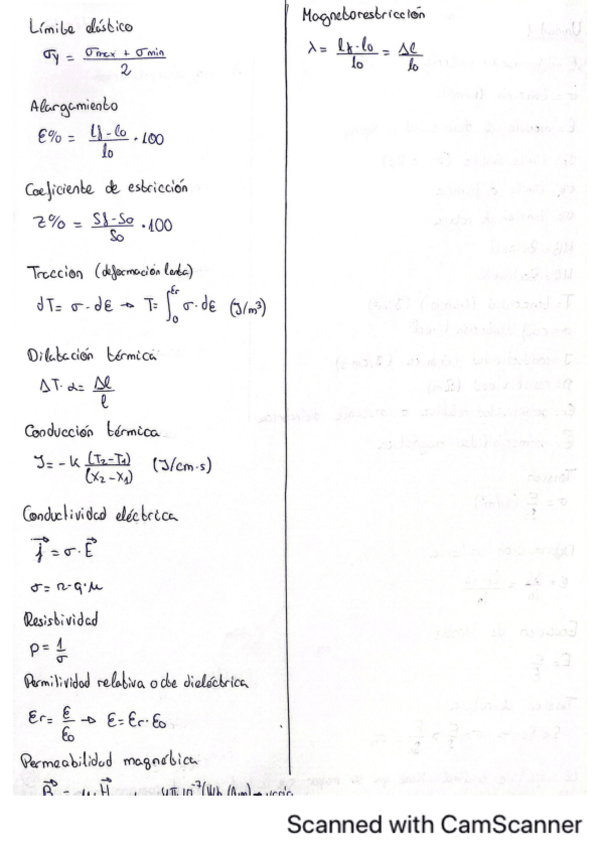 Límite elástico
σy = σmax + σmin / 2
Alargamiento
ε% = lf - lo / lo · 100
Coeficiente de estricción
Z% = Sf - So / So · 100
Traccion (deformación lenta)
dT = σ · dε → T = ∫₀^εr σ · dε (J/m³)
Dilatación térmica
ΔT · α = Δl / l
Conducción térmica
J = -k (T2 - T1) / (x2 - x1) (J/cm·s)
Conductividad eléctrica
j = σ · E
σ = n · q · μ
Resistividad
ρ = 1 / σ
Permitividad relativa o cte dieléctrica
εr = ε / εo → ε = εr · εo
Permeabilidad magnética
Magnetorestricción
λ = lf - lo / lo = Δl / lo
Scanned with CamScanner